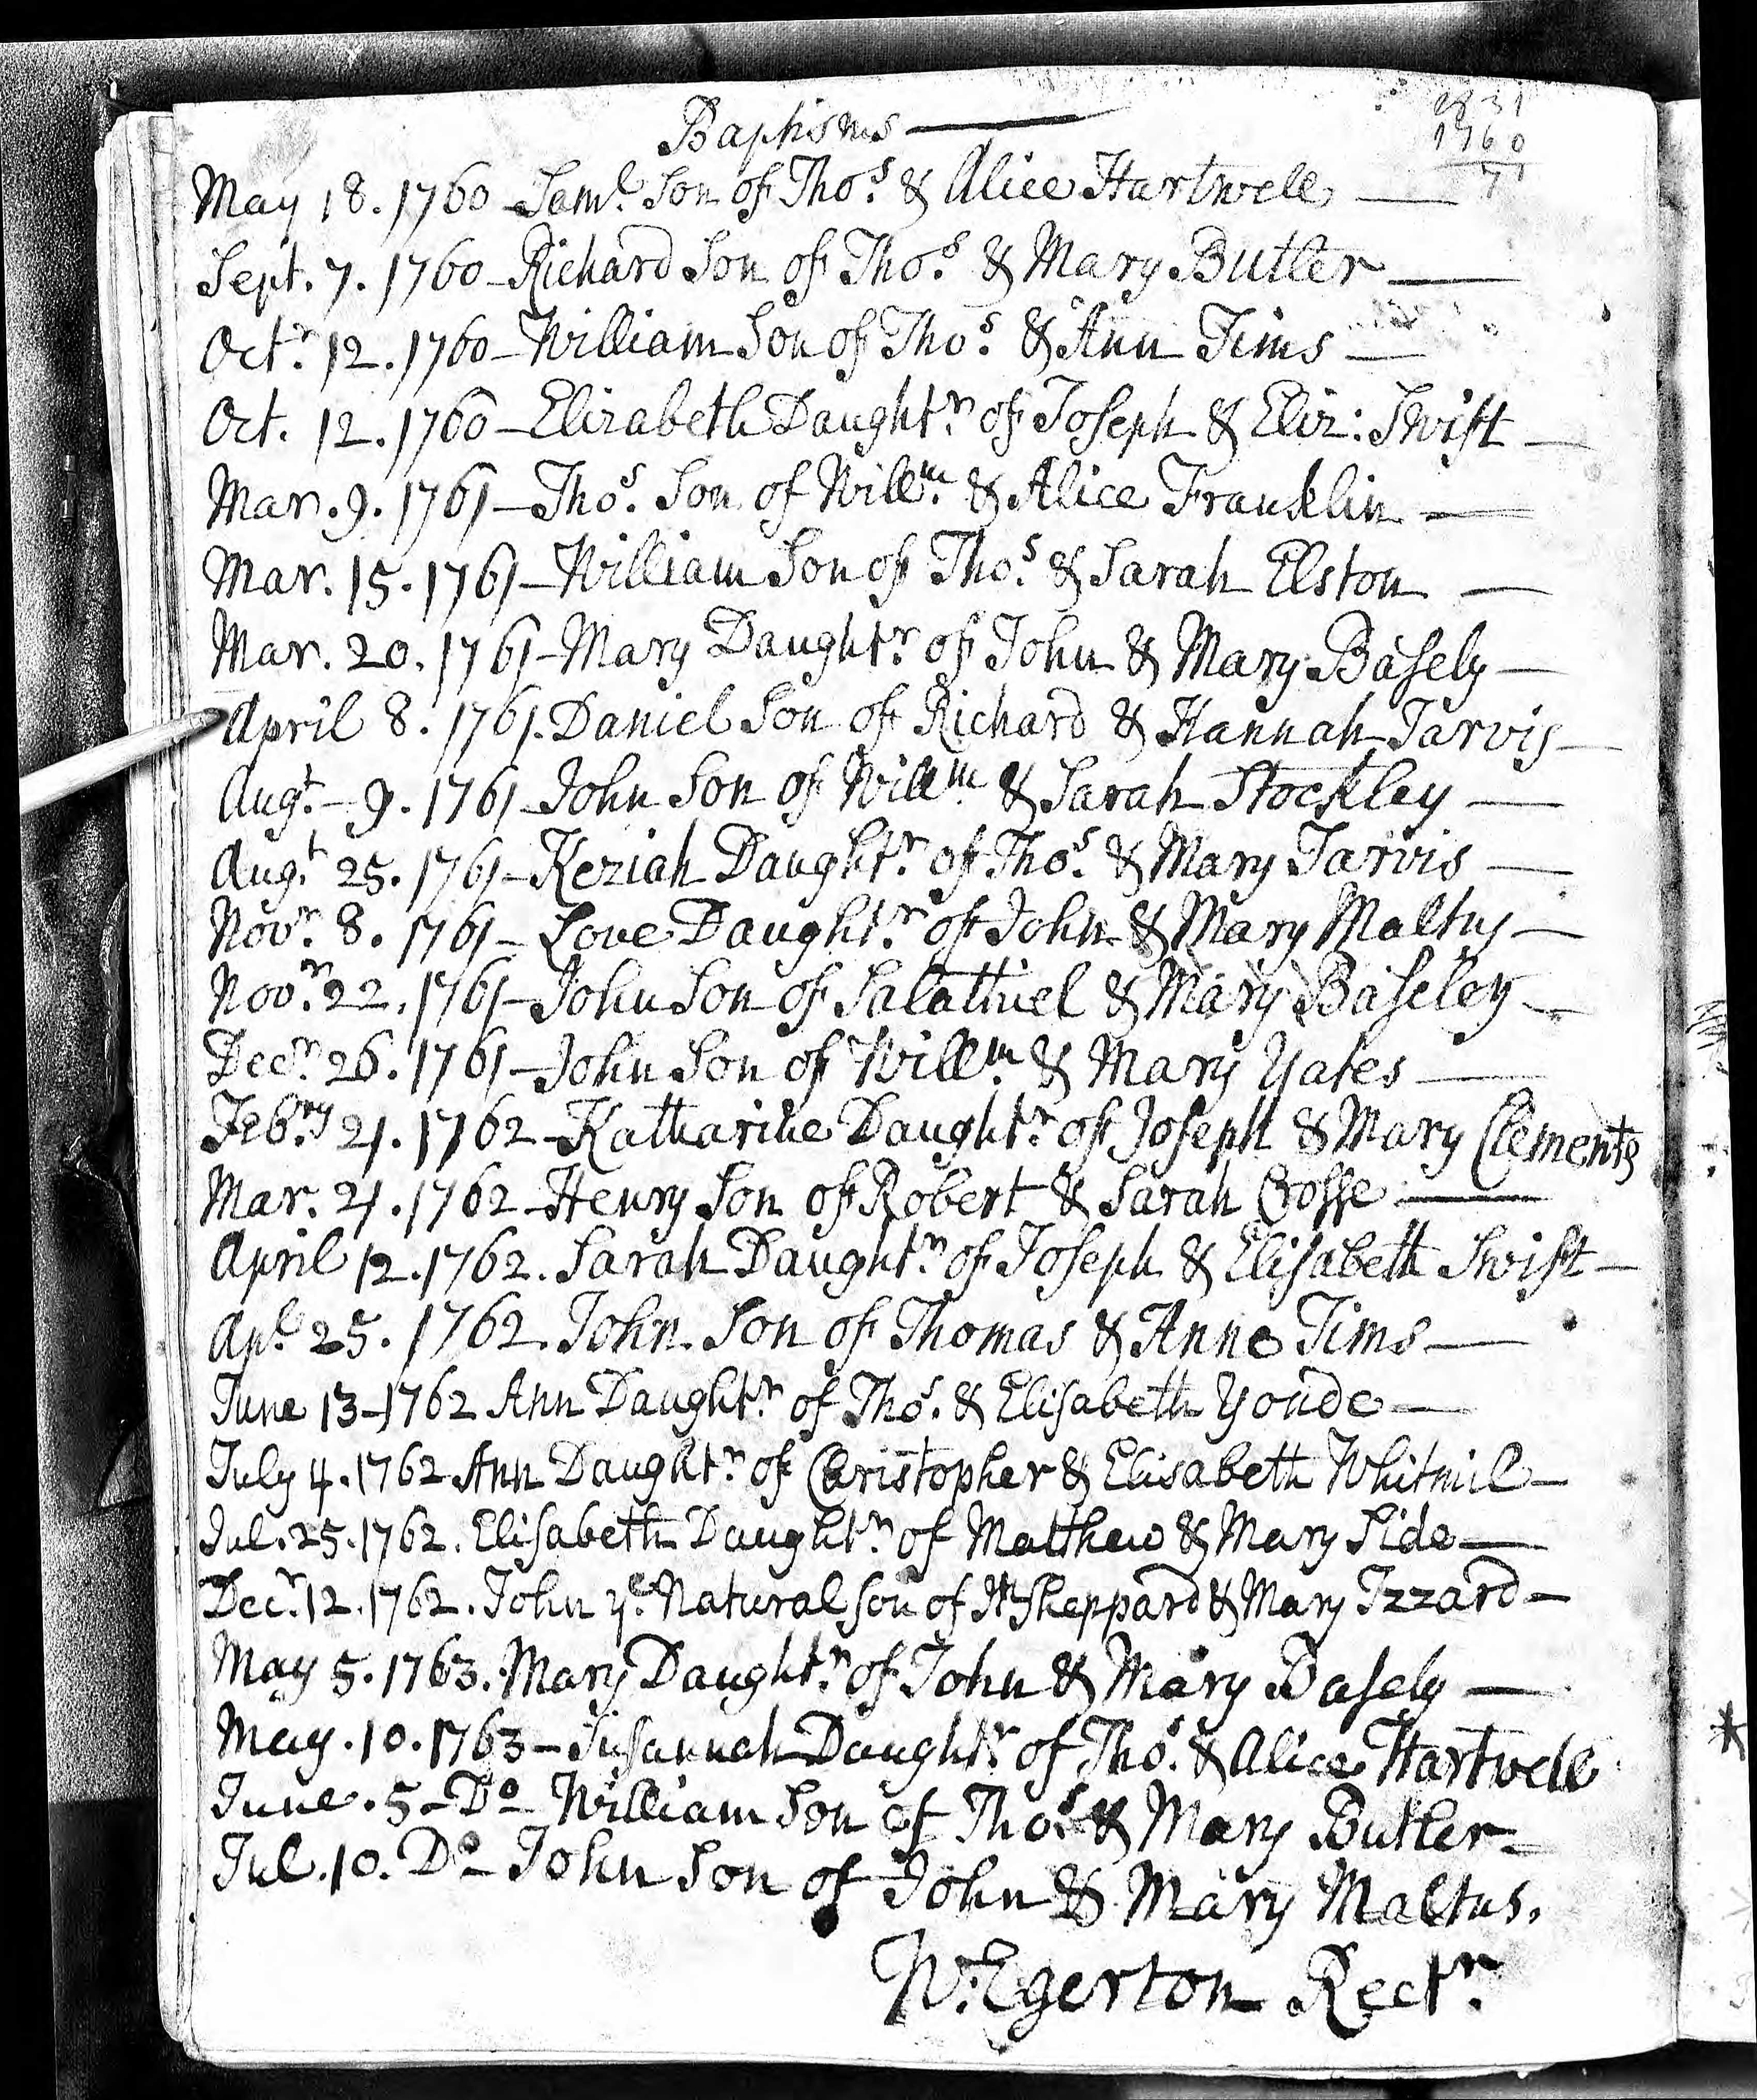 Baptisms
1831
1760
71
May 18. 1760 Saml. Son of Thos. & Alice Hartwell
Sept. 7. 1760 Richard Son of Thos. & Mary Butler
Octr. 12. 1760 William Son of Thos. & Ann Tims
Oct. 12. 1760 Elizabeth Daughtr. of Joseph & Eliz: Swift
Mar. 9. 1761 Thos. Son of Willm. & Alice Franklin
Mar. 15. 1761 William Son of Thos. & Sarah Elston
Mar. 20. 1761 Mary Daughtr. of John & Mary Basely
April 8. 1761. Daniel Son of Richard & Hannah Jarvis
Augt. 9. 1761 John Son of Willm. & Sarah Stockley
Augt. 25. 1761 Keziah Daughtr. of Thos. & Mary Jarvis
Novr. 8. 1761 Love Daughtr. of John & Mary Maltus
Novr. 22. 1761 John Son of Salathiel & Mary Baseley
Decr. 26. 1761 John Son of Willm. & Mary Yates
Febry. 21. 1762 Katharine Daughtr. of Joseph & Mary Clements
Mar. 21. 1762 Henry Son of Robert & Sarah Crosse
April 12. 1762. Sarah Daughtr. of Joseph & Elisabeth Swift
Apl. 25. 1762. John Son of Thomas & Anne Tims
June 13 1762 Ann Daughtr. of Thos. & Elisabeth Youde
July 4. 1762 Ann Daughtr. of Christopher & Elisabeth Whitmil
Jul. 25. 1762. Elisabeth Daughtr. of Matthew & Mary Side
Decr. 12. 1762. John ye. Natural Son of Sheppard & Mary Izzard
May 5. 1763. Mary Daughtr. of John & Mary Basely
May. 10. 1763 Susannah Daughtr. of Thos. & Alice Hartwell
June. 5 Do William Son of Thos. & Mary Butler
Jul. 10. Do John Son of John & Mary Maltus.
W: Egerton Rectr.